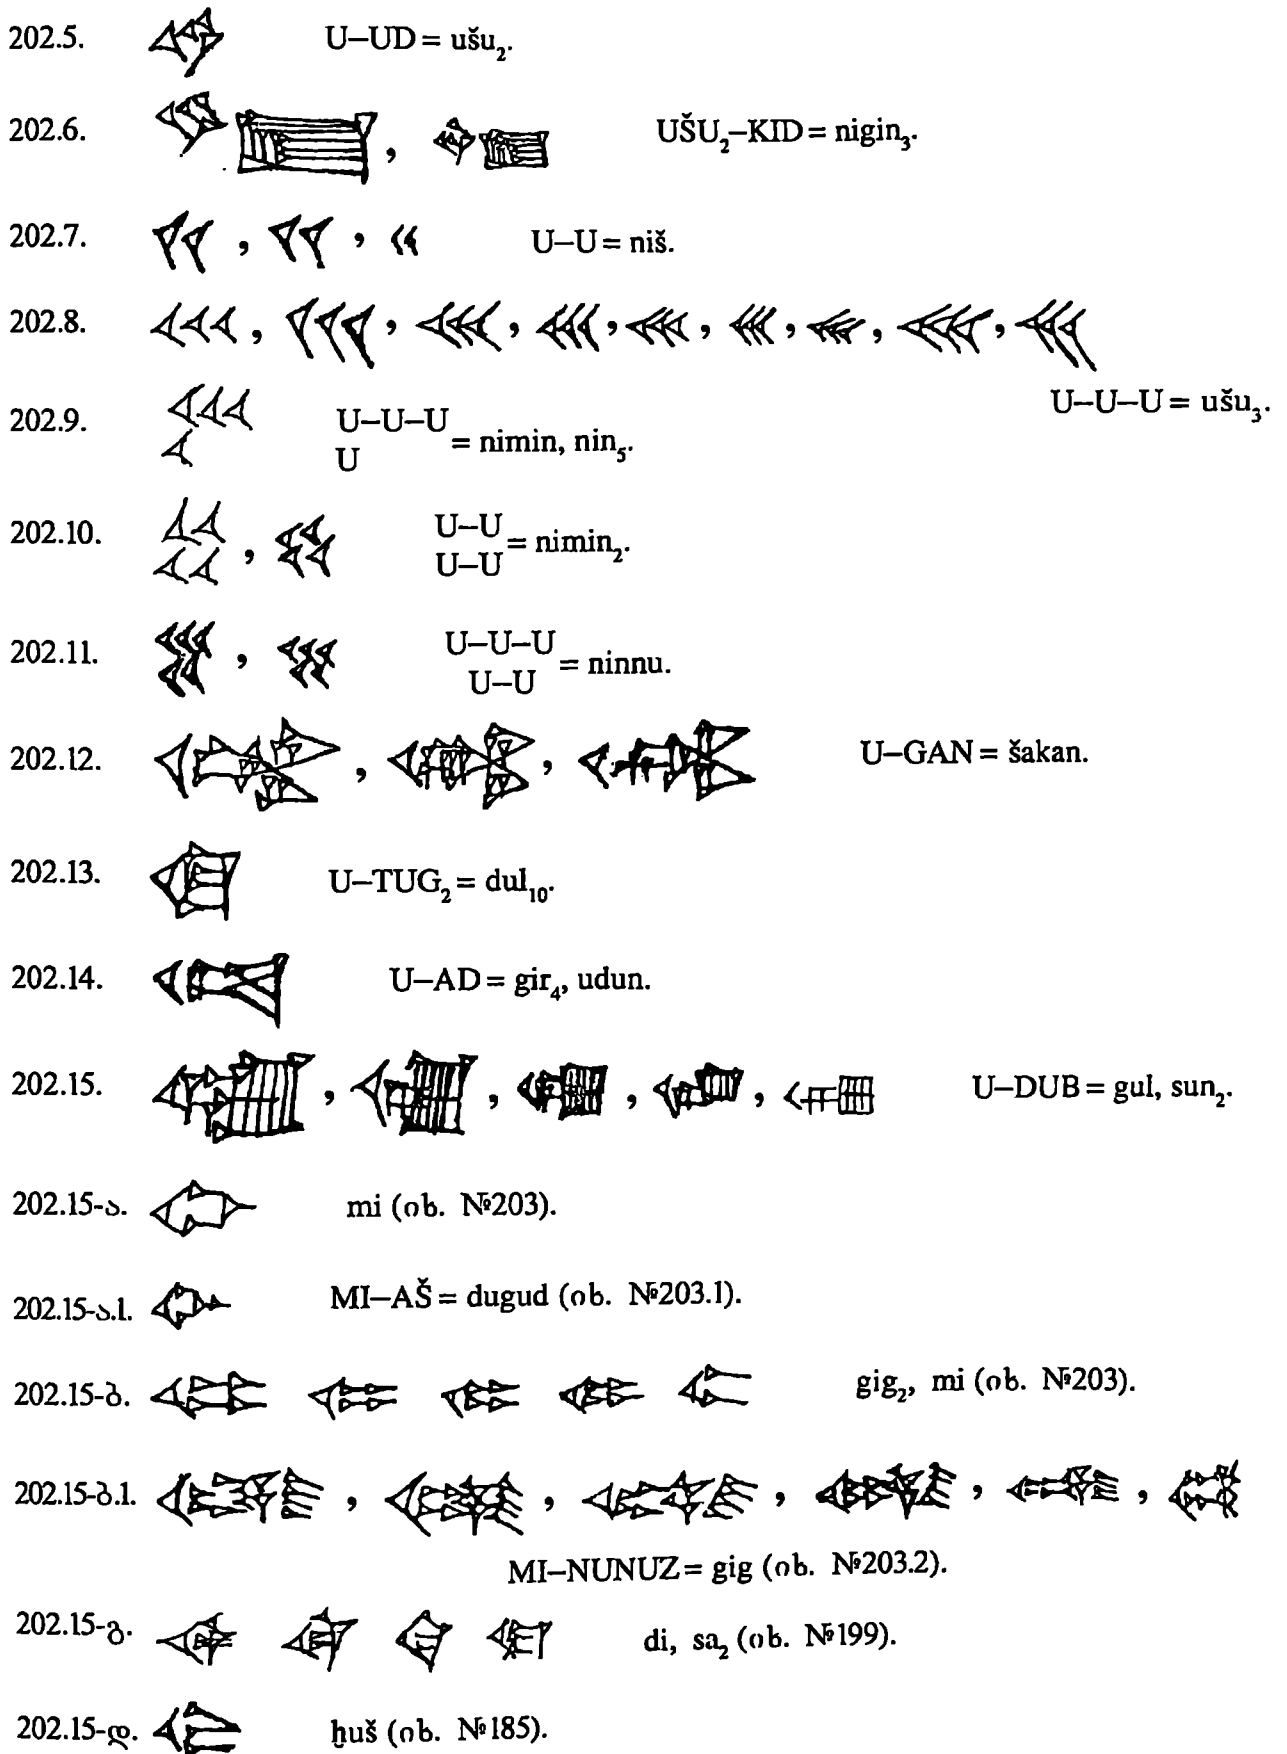 202.5. U–UD = ušu₂.
202.6. , UŠU₂–KID = nigin₃.
202.7. , , U–U = niš.
202.8. , , , , , , , ,
U–U–U = ušu₃.
202.9. U–U–U
U = nimin, nin₅.
202.10. , U–U
U–U = nimin₂.
202.11. , U–U–U
U–U = ninnu.
202.12. , , U–GAN = šakan.
202.13. U–TUG₂ = dul₁₀.
202.14. U–AD = gir₄, udun.
202.15. , , , , U–DUB = gul, sun₂.
202.15-ა. mi (იხ. №203).
202.15-ა.1. MI–AŠ = dugud (იხ. №203.1).
202.15-ბ. gig₂, mi (იხ. №203).
202.15-ბ.1. , , , , ,
MI–NUNUZ = gig (იხ. №203.2).
202.15-გ. di, sa₂ (იხ. №199).
202.15-დ. ḫuš (იხ. №185).